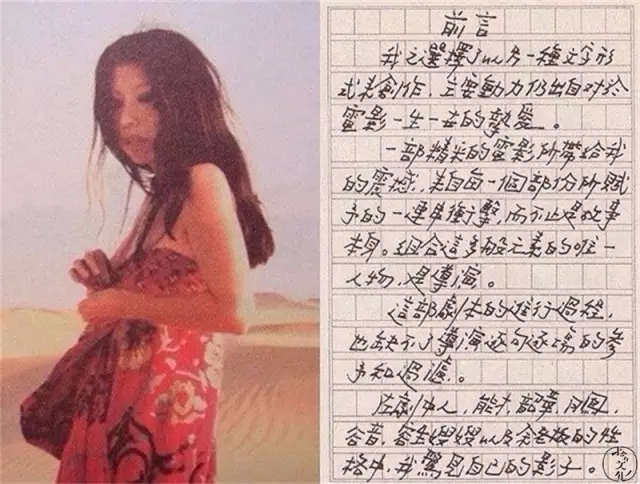 前言
我之選擇了以另一種文字形
式來創作，主要動力仍出自對於
電影一生一世的摯愛。
一部精釆的電影所帶給我
的震撼，來自每一個部份所賦
予的一連串衝擊，而不止是故事
本身。組合這多般元素的唯一
人物，是導演。
這部劇本的進行過程，
也缺不了導演逐句逐場的參
予和過濾。
在劇中人，能才，韶華，月鳳，
谷音，容生嫂嫂以及余老板的性
格中，我驚見自己的影子。